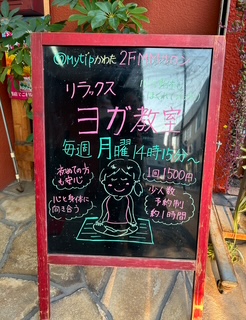 @Mytipかわた 2F
リラックス
ヨガ教室
毎週 月曜 14時15分〜
初めての方
も安心
心と身体に
向き合う
1回1500円
少人数
予約制
約1時間